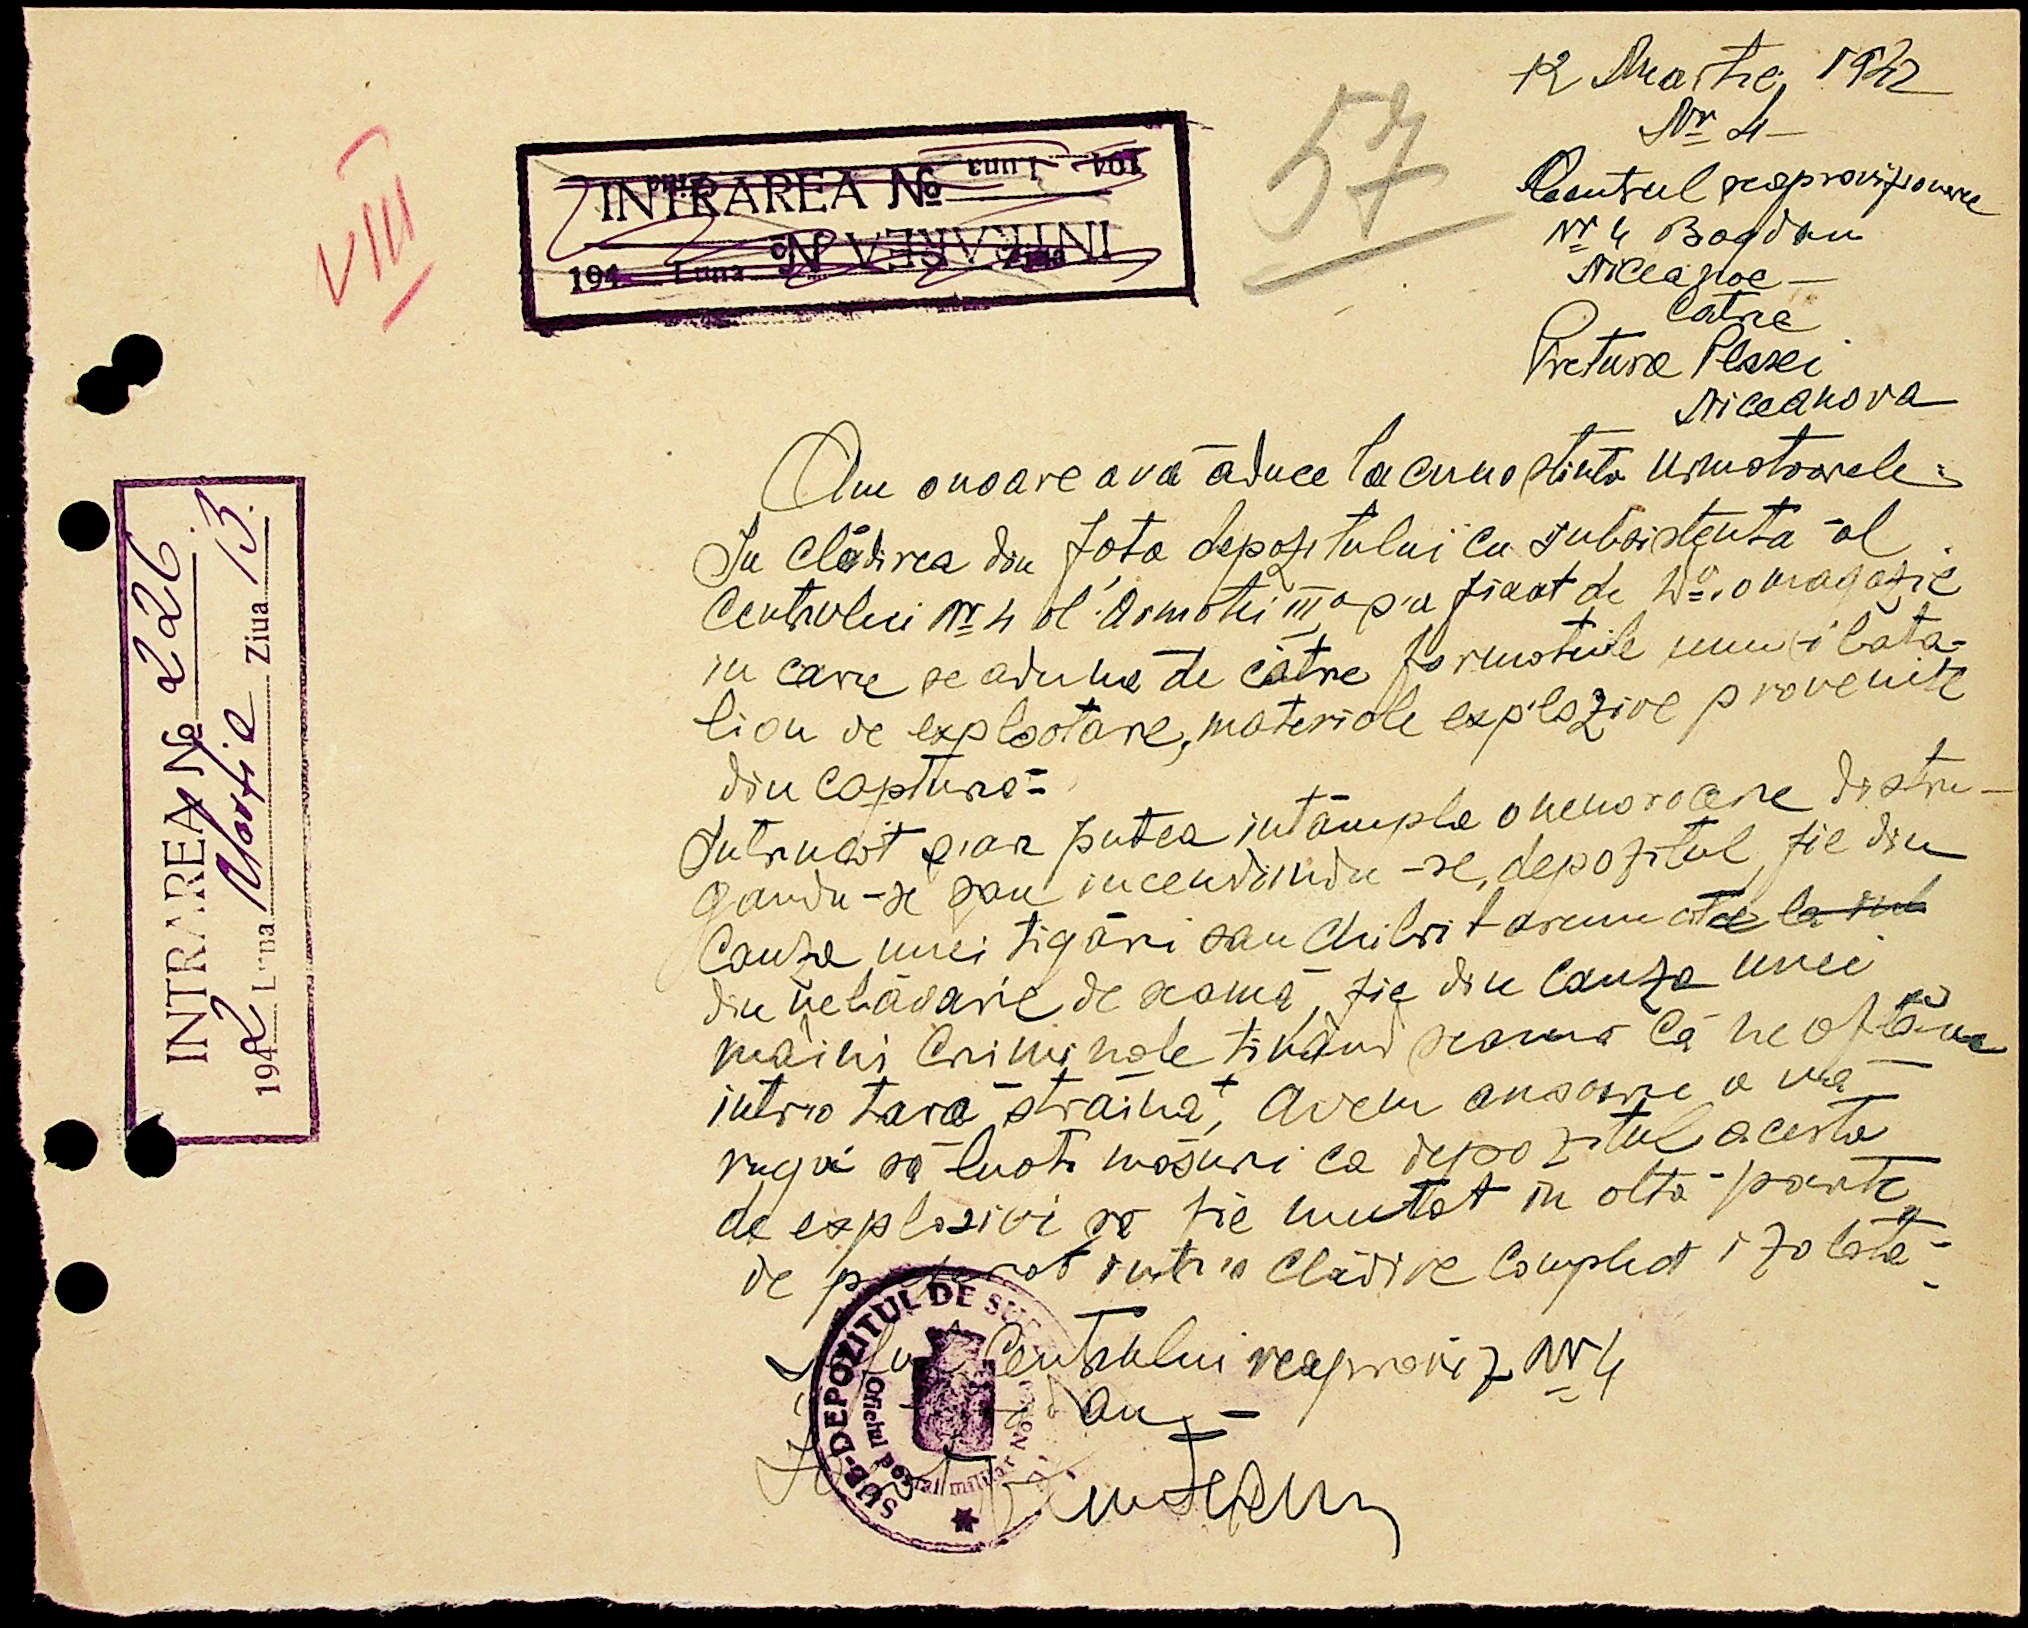 12 Martie 1942
Nr 4
Centrul reaprovizionare
Nr 4 Bogdan
Niceanoe
Catre
Pretura Plasei
Niceanova
57
VIII
INTRAREA No
194 Luna
INTRAREA No 2226
1942 Luna Martie Ziua 13
Am onoare a va aduce la cunostinta urmatoarele:
In clădirea din fata depozitului cu subsistenta al
Centrului Nr 4 al Armatei III a s'a fixat de o magazie
in care se aduna de către formatiile unui bata-
lion de exploatare, materiale explozive provenite
din captura =
Intrucât s'ar putea intâmpla o nenorocire distru-
gandu-se sau incendiindu-se, depozitul, fie din
Cauza unei tigări sau chibrit aruncate la sub
din nebăgarie de seamă, fie din cauza unei
mâini Criminale tinând seama că ne aflăm
intr'o tară străină, avem onoare a vă
ruga să luati măsuri ca depozitul acesta
de explozivi sa fie mutat in altă parte
de preferat intr'o clădire complect izolată =
Centrului reaproviz Nr 4
SUB-DEPOZITUL DE
Oficiul postal militar No